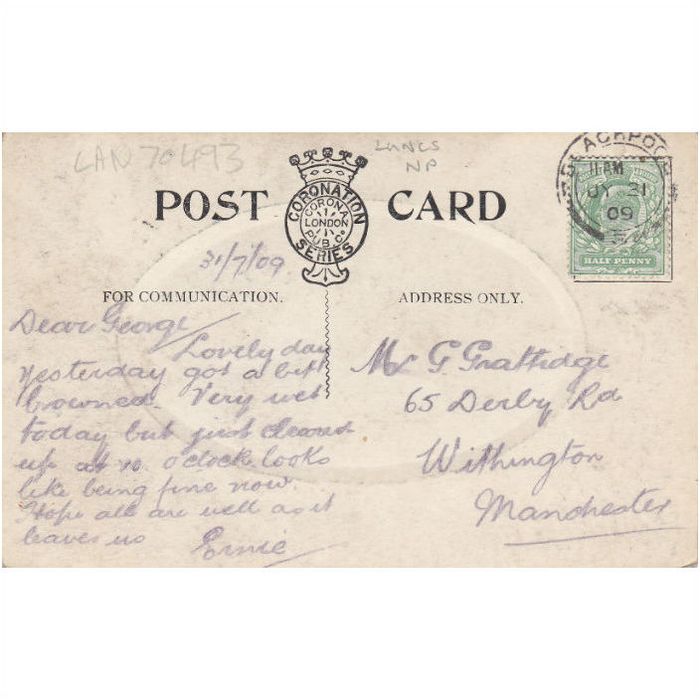 LAN 70493
LANCS
NP
POST CARD
CORONATION
CORONA
LONDON
PUB. Co.
SERIES
BLACKPOOL
11 AM
JY 31
09
HALF PENNY
31/7/09
FOR COMMUNICATION.
ADDRESS ONLY.
Dear George/
Lovely day
yesterday got a bit
browned. Very wet
today but just cleared
up at 10. o'clock. looks
like being fine now.
Hope all are well as it
leaves us Ernie
Mr G Grattidge
65 Derby Rd
Withington
Manchester